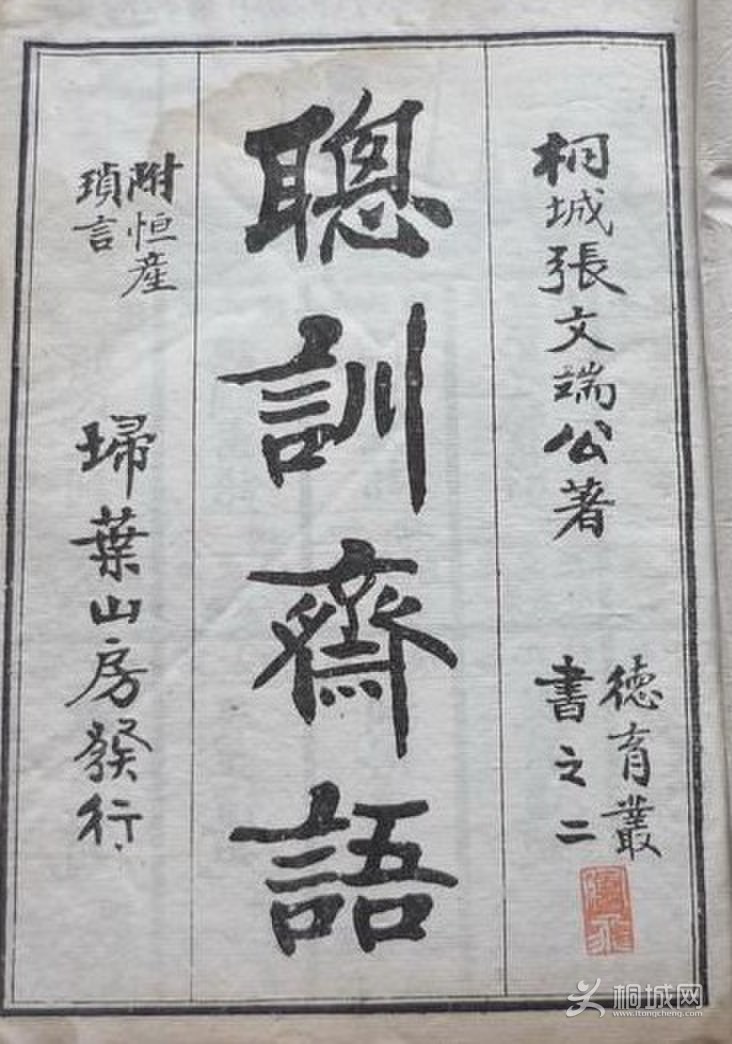 桐城張文端公著
德育叢
書之二
聰訓齋語
附恒產
瑣言
埽葉山房發行
桐城网
www.itongcheng.com